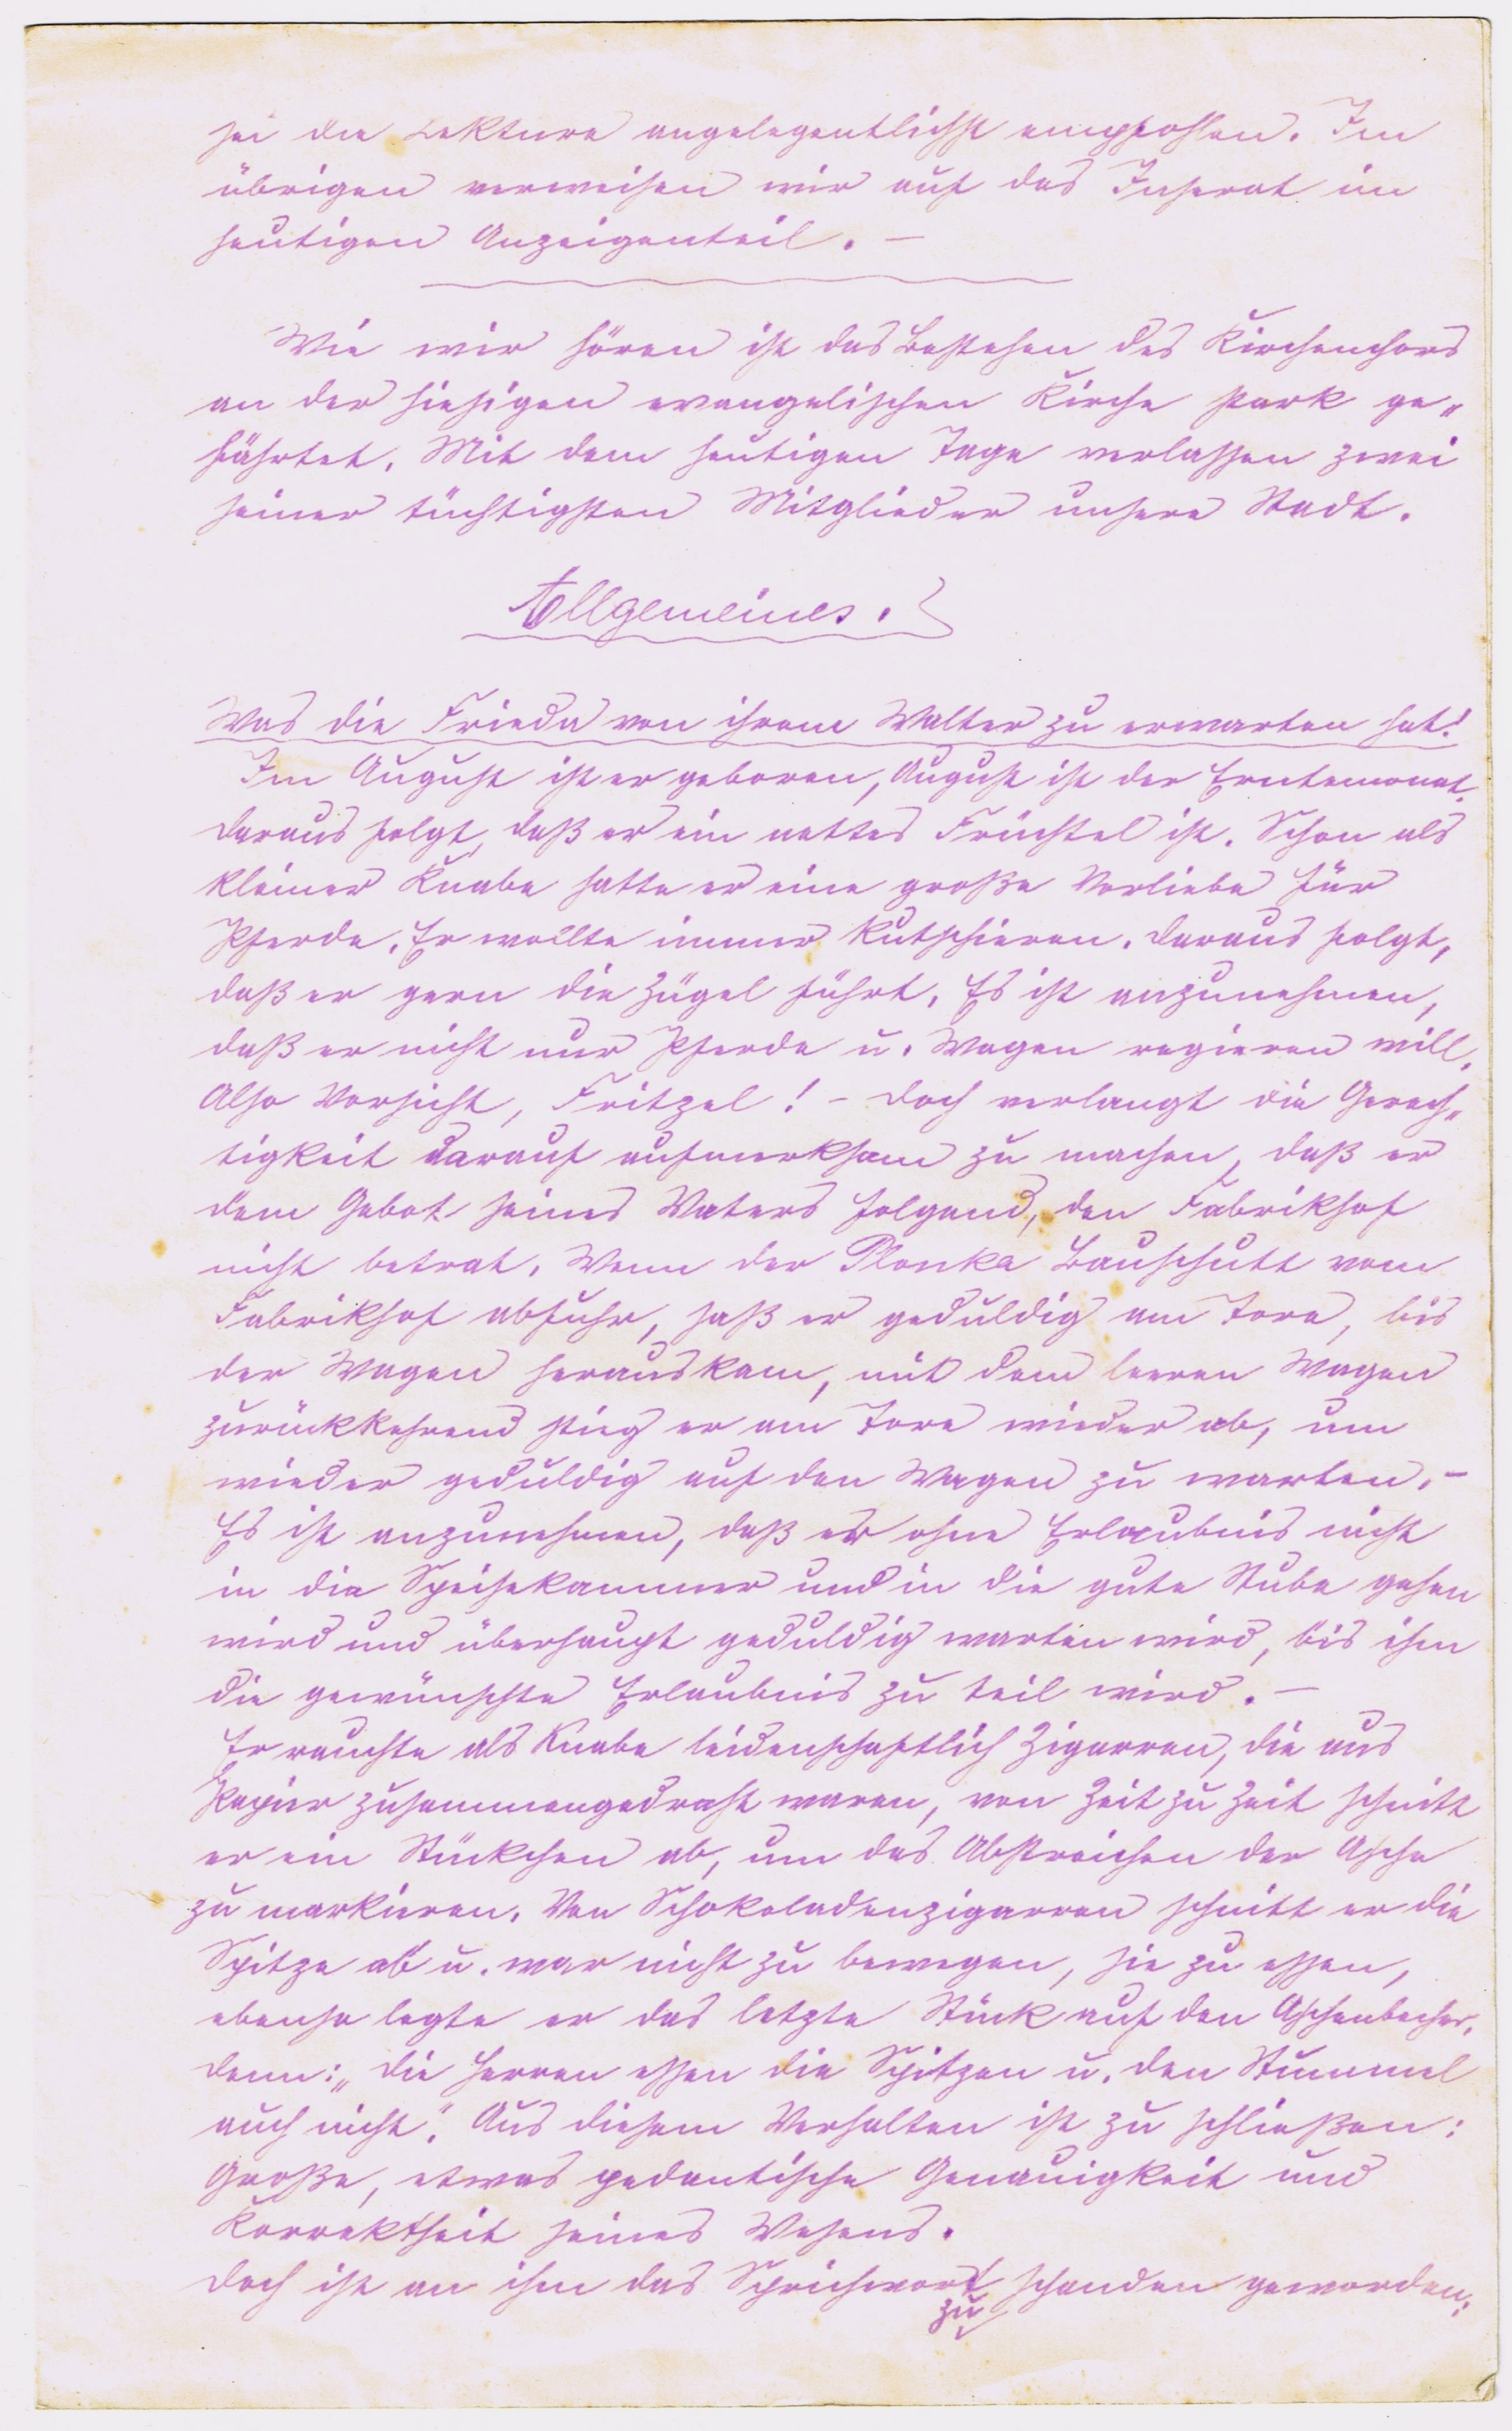 sei die Lektüre angelegentlichst empfohlen. Im
übrigen verweisen wir auf das Inserat im
heutigen Anzeigenteil. –
Wie wir hören ist das Bestehen des Kirchenchors
an der hiesigen evangelischen Kirche stark ge„
fährtet. Mit dem heutigen Tage verlassen zwei
seiner tüchtigsten Mitglieder unsere Stadt.
Allgemeines.
Was die Frieda von ihrem Walter zu erwarten hat!
Im August ist er geboren, August ist der Erntemonat.
daraus folgt, daß er ein nettes Früchtel ist. Schon als
kleiner Knabe hatte er eine große Vorliebe für
Pferde. Er wollte immer kutschieren. daraus folgt,
daß er gern die Zügel führt. Es ist anzunehmen,
daß er nicht nur Pferde u. Wagen regieren will.
Also Vorsicht, Fritzel! – Doch verlangt die Gerech„
tigkeit darauf aufmerksam zu machen, daß er
dem Gebot seines Vaters folgend, den Fabrikhof
nicht betrat. Wenn der Plonka Bauschutt vom
Fabrikhof abfuhr, saß er geduldig am Tore, bis
der Wagen herauskam, mit dem leeren Wagen
zurückkehrend stieg er am Tore wieder ab, um
wieder geduldig auf den Wagen zu warten. –
Es ist anzunehmen, daß er ohne Erlaubnis nicht
in die Speisekammer und in die gute Stube gehen
wird und überhaupt geduldig warten wird, bis ihm
die gewünschte Erlaubnis zu teil wird. –
Er rauchte als Knabe leidenschaftlich Zigarren, die aus
Papier zusammengedreht waren, von Zeit zu Zeit schnitt
er ein Stückchen ab, um das Abstreichen der Asche
zu markieren. Von Schokoladenzigarren schnitt er die
Spitze ab u. war nicht zu bewegen, sie zu essen,
ebenso legte er das letzte Stück auf den Aschenbecher,
denn: „die Herren essen die Spitzen u. den Stummel
auch nicht". Aus diesem Verhalten ist zu schließen:
Große, etwas pedantische Genauigkeit und
Korrektheit seines Wesens.
Doch ist an ihm das Sprichwort schanden geworden:
zu